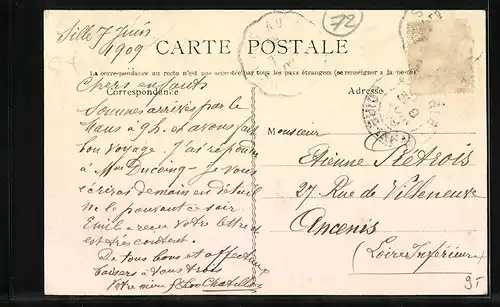 Sillé 7 Juin
1909
72
CARTE POSTALE
La correspondance au recto n'est pas acceptée par tous les pays étrangers (se renseigner à la poste)
Correspondance
Adresse
Chers enfants
Sommes arrivés par le
Mans à 9h. et avons fait
bon voyage. J'ai répondu
à Mme Ducoing - Je vous
écrirai demain en détail
ne le pouvant ce soir.
Emile a reçu votre lettre et
est très content.
De tous bons et affectueux
baisers à vous trois
Votre mère
Monsieur
Etienne
27 Rue de Villeneuve
Ancenis
(Loire Inférieure)
9F